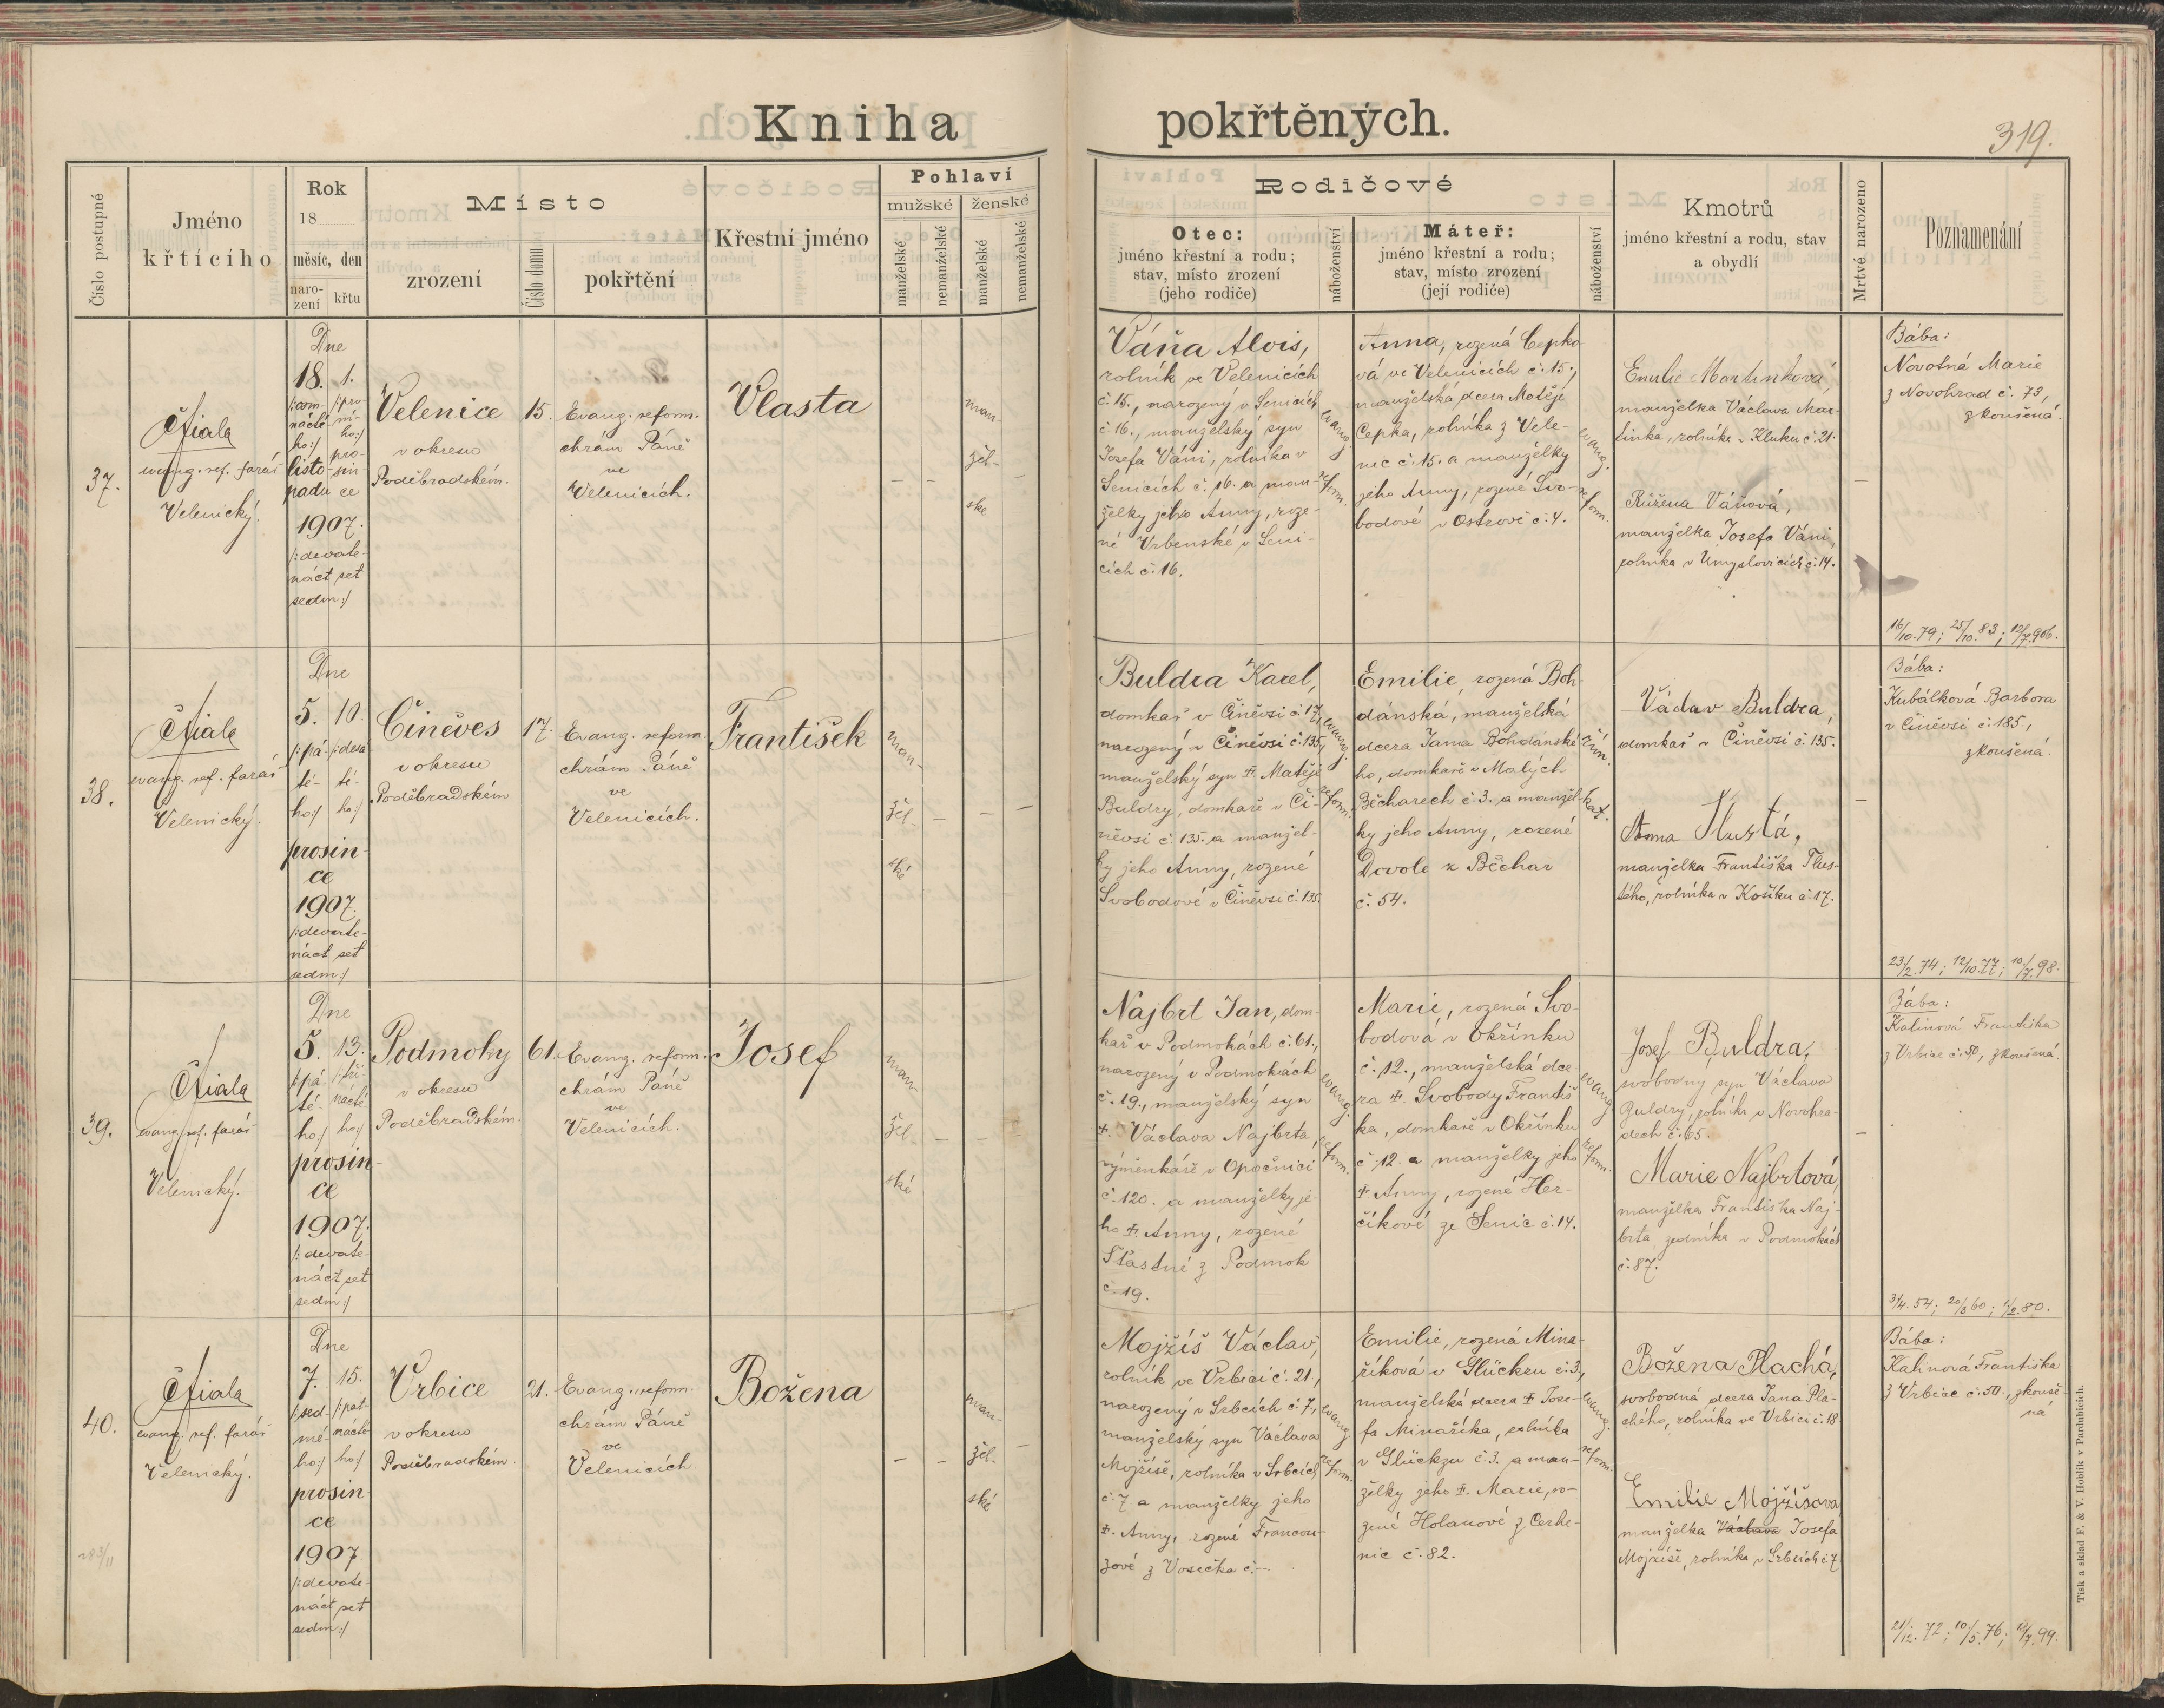 Kniha pokřtěných.
319.
Číslo postupné
Jméno
křtícího
Rok
18
měsíc, den
naro-
zení
křtu
Místo
zrození
Číslo domu
pokřtění
Křestní jméno
Pohlaví
mužské
ženské
manželské
nemanželské
manželské
nemanželské
Rodičové
Otec:
jméno křestní a rodu;
stav, místo zrození
(jeho rodiče)
náboženství
Máteř:
jméno křestní a rodu;
stav, místo zrození
(její rodiče)
náboženství
Kmotrů
jméno křestní a rodu, stav
a obydlí
Mrtvě narozeno
Poznamenání
37.
evang. ref. farář
Velenický.
Dne
18. 1.
/:osm- /:prv-
náctê- ní-
ho:/ ho:/
listo- pro-
padu sin
ce
1907.
/:devate-
náct set
sedm:/
Velenice
v okresu
Poděbradském.
15.
Evang. reform.
chrám Páně
ve
Velenicích.
Vlasta
man-
žel-
ské
Váňa Alois,
rolník ve Velenicích
č. 15., narozený v Senicích
č. 16., manželský syn
Josefa Váni, rolníka v
Senicích č. 16. a man-
želky jeho Anny, roze-
né Vrbenské v Seni-
cích č. 16.
evang.
reform.
Anna, rozená Čepko-
vá ve Velenicích č. 15.,
manželská dcera Matěje
Čepka, rolníka z Vele-
nic č. 15. a manželky
jeho Anny, rozené Svo-
bodové v Ostrově č. 4.
evang.
reform.
Emilie Martinková,
manželka Václava Mar-
tinka, rolníka v Kluku č. 21.
Růžena Váňová,
manželka Josefa Váni,
rolníka v Úmyslovicích č. 14.
Bába:
Novotná Marie
z Novohrad č. 73,
zkoušená.
16/10. 79; 25/10. 83; 12/7. 906.
38.
evang. ref. farář
Velenický.
Dne
5. 10.
/:pá- /:desá
té- té-
ho:/ ho:/
prosin-
ce
1907.
/:devate-
náct set
sedm:/
Činěves
v okresu
Poděbradském
17.
Evang. reform.
chrám Páně
ve
Velenicích.
František
man-
žel-
ské
Buldra Karel,
domkař v Činěvsi č. 17.,
narozený v Činěvsi č. 135,
manželský syn †. Matěje
Buldry, domkaře v Či-
něvsi č. 135. a manžel-
ky jeho Anny, rozené
Svobodové v Činěvsi č. 135.
evang.
reform.
Emilie, rozená Boh-
dánská, manželská
dcera Jana Bohdánské-
ho, domkaře v Malých
Běcharech č. 3. a manžel-
ky jeho Anny, rozené
Dovole z Běchar
č. 54.
řím.
kat.
Václav Buldra,
domkař v Činěvsi č. 135.
Anna Tlustá,
manželka Františka Tlus-
tého, rolníka v Košíku č. 17.
Bába:
Kubálková Barbora
v Činěvsi č. 185,
zkoušená.
23/2. 74; 12/10. 77; 10/7. 98.
39.
evang. ref. farář
Velenický.
Dne
5. 13.
/:pá- /:tři-
té- nácté
ho:/ ho:/
prosin-
ce
1907.
/:devate-
náct set
sedm:/
Podmoky
v okresu
Poděbradském.
61.
Evang. reform.
chrám Páně
ve
Velenicích.
Josef
man-
žel-
ské
Najbrt Jan, dom-
kař v Podmokách č. 61.,
narozený v Podmokách
č. 19., manželský syn
†. Václava Najbrta,
výměnkáře v Opočnici
č. 120. a manželky je-
ho †. Anny, rozené
Šťastné z Podmok
č. 19.
evang.
reform.
Marie, rozená Svo-
bodová v Okřínku
č. 12., manželská dce-
ra †. Svobody Františ-
ka, domkaře v Okřínku
č. 12. a manželky jeho
†. Anny, rozené Her-
číkové ze Senic č. 14.
evang.
reform.
Josef Buldra,
svobodný syn Václava
Buldry, rolníka v Novohra-
dech č. 65.
Marie Najbrtová,
manželka Františka Naj-
brta, zedníka v Podmokách
č. 87.
Bába:
Kalinová Františka
z Vrbice č. 50, zkoušená.
3/4. 54; 20/3 60; 1/2. 80.
40.
evang. ref. farář
Velenický.
Dne
7. 15.
/:sed- /:pat-
mé- nácté-
ho:/ ho:/
prosin-
ce
1907.
/:devate-
náct set
sedm:/
Vrbice
v okresu
Poděbradském
21.
Evang. reform.
chrám Páně
ve
Velenicích.
Božena
man-
žel-
ské
Mojžíš Václav,
rolník ve Vrbici č. 21.,
narozený v Srbcích č. 7.,
manželský syn Václava
Mojžíše, rolníka v Srbcích
č. 7 a manželky jeho
†. Anny, rozené Francou-
zové z Vosečka č. -.
evang.
reform.
Emilie, rozená Mina-
říková v Glückzu č. 3.,
manželská dcera † Jose-
fa Minaříka, rolníka
v Glückzu č. 3. a man-
želky jeho †. Marie, ro-
zené Holanové z Cerhe-
nic č. 82.
evang.
reform.
Božena Plachá,
svobodná dcera Jana Pla-
chého, rolníka ve Vrbici č. 18
Emilie Mojžíšova
manželka Václava Josefa
Mojžíše, rolníka v Srbcích č. 7.
Bába:
Kalinová Františka
z Vrbice č. 50., zkouše-
ná
21/12. 72; 10/5. 76; 19/7. 99.
Tisk a sklad F. & V. Hoblík v Pardubicích.